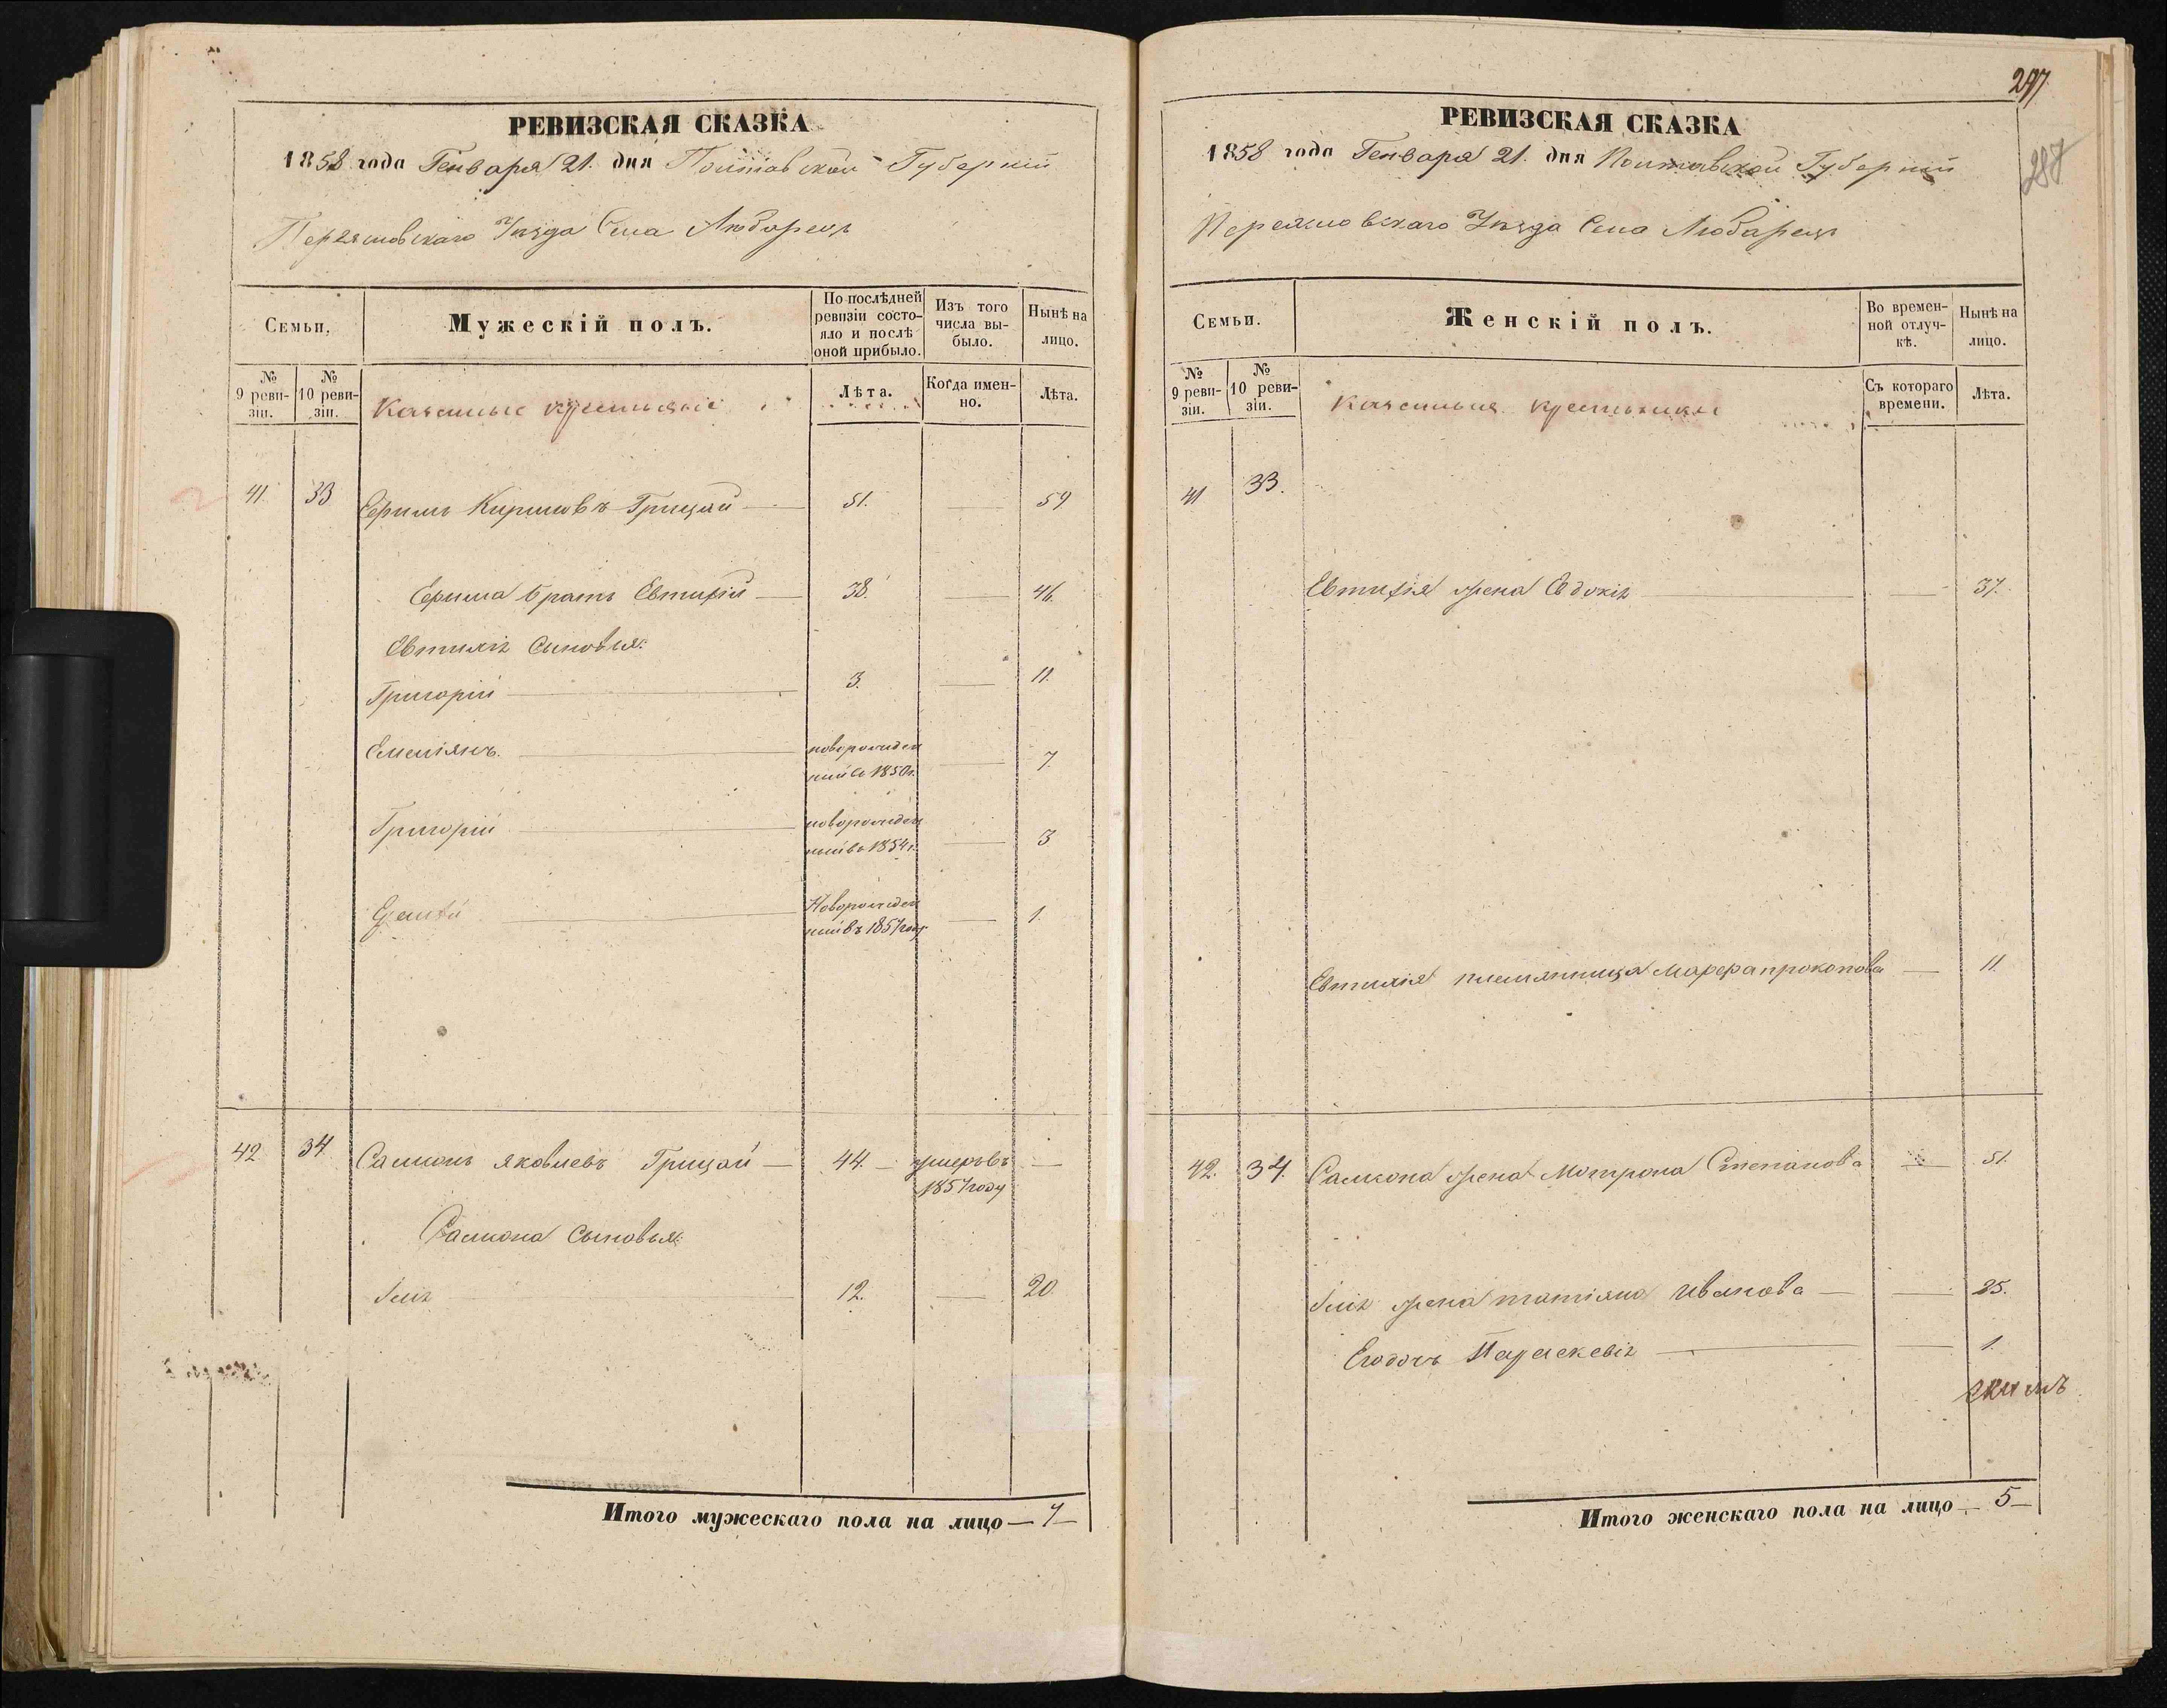 РЕВИЗСКАЯ СКАЗКА
1858 года Генваря 21. дня Полтавской Губерніи
Переяславскаго Уезда Села Любарець
Семьи.
Мужескій полъ.
По последней ревизіи состояло и послѣ оной прибыло.
Изъ того числа выбыло.
Нынѣ на лицо.
№ 9 ревизіи.
№ 10 ревизіи.
Казенные крестьяне
Лѣта.
Когда именно.
Лѣта.
41. 33 Ефимъ Кириловъ Грицай 51. 59
Ефима братъ Евтихій 38. 46.
Евтихія Сыновья:
Григорій 3. 11.
Емеліянъ. новорожден 7.
ный въ 1850г.
Григорій новорожден 3
ный въ 1854г.
Новорожден 1.
ный въ 1857 году
42 34. Самсонъ яковлевъ Грицай 44. умеръ въ
1857 году
Самсона Сыновья:
Илія 12. 20.
Итого мужескаго пола на лицо 7
297
287
РЕВИЗСКАЯ СКАЗКА
1858 года Генваря 21. дня Полтавской Губерніи
Переяславскаго Уезда Села Любарець
Семьи.
Женскій полъ.
Во временной отлучкѣ.
Нынѣ на лицо.
№ 9 ревизіи.
№ 10 ревизіи.
Казенныя крестьянки
Съ котораго времени.
Лѣта.
41 33.
Евтихія жена Евдокія 37.
Евтихія племянница Марфа прокопова 11.
42. 34. Самсона жена Мотрона Степанова 51.
Илія жена татіяна Иванова 25.
Его дочь Параскевія 1.
Итого женскаго пола на лицо 5